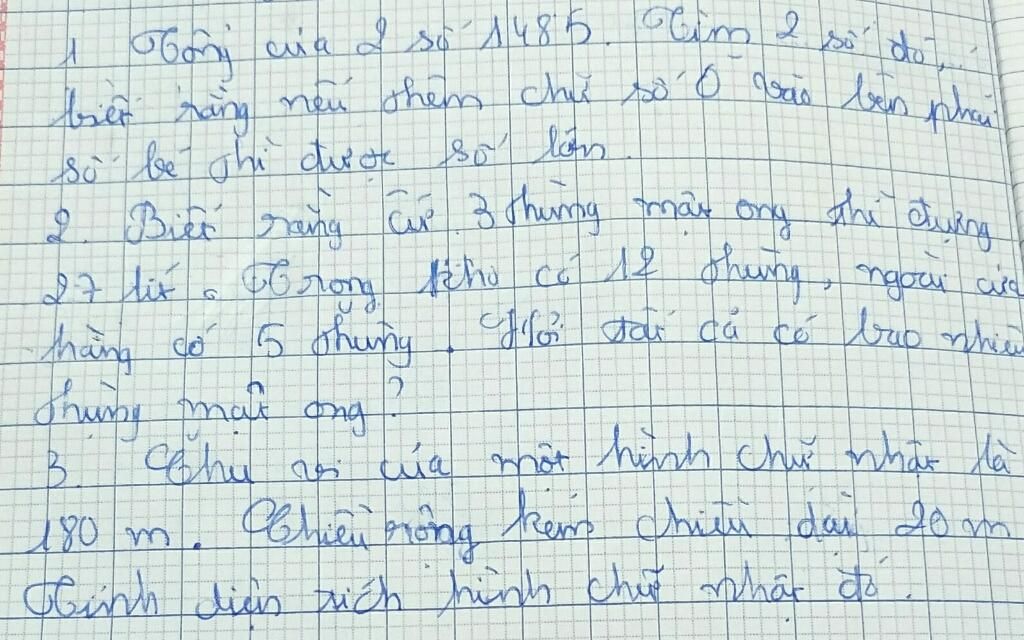 1 Tổng của 2 số 1485. Tìm 2 số đó,
biết rằng nếu thêm chữ số 0 vào bên phải
số bé thì được số lớn.
2. Biết rằng cứ 3 thùng mật ong thì đựng
27 lít. Trong kho có 12 thùng, ngoài cửa
hàng có 5 thùng. Hỏi tất cả có bao nhiêu
thùng mật ong?
3. Chu vi của một hình chữ nhật là
180 m. Chiều rộng kém chiều dài 20 m
Tính diện tích hình chữ nhật đó.